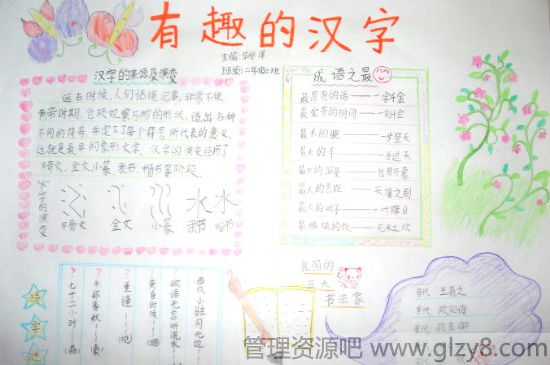 有趣的汉字
主编:
班级:二年级二班
汉字的来源及演变
远古时候,人们结绳记事,非常不便。
黄帝时期,仓颉观察鸟兽的形状,造出各种
不同的符号,并定下了每个符号所代表的意义
这就是最早的象形文字。汉字的演变经历了
甲骨文、金文、小篆、隶书、楷书等阶段。
水字的演变
水 水
甲骨文 金文 小篆 隶书 楷书
成语之最
最贵重的话——一字千金
最宝贵的时间——一刻千金
最大的脚——一步登天
最大的手——一手遮天
最大的容量——包罗万象
最大的差距——天壤之别
最大的叶子——一叶障日
最难做的饭——无米之炊
我国的
五大
书法家
晋代 王羲之
唐代 欧阳询
唐代 颜真卿
猜字谜
七十二小时——(晶)
半部春秋——(秦)
重逢——(观)
黄昏时候——(暗)
欲话无言听流水
西风小驻同光返
管理资源吧 www.glzy8.com